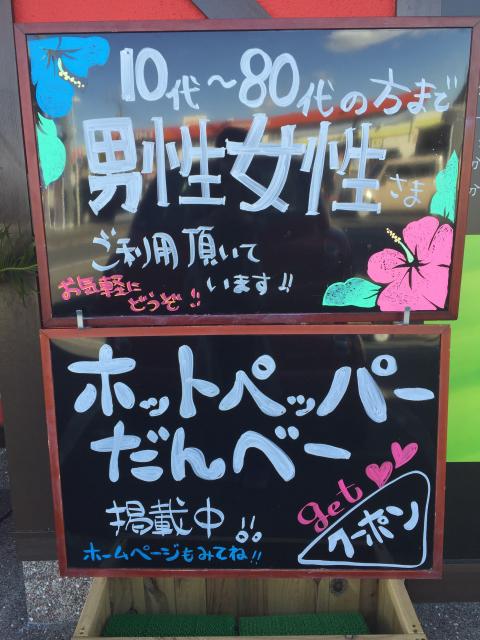 10代～80代の方まで
男性女性さま
ご利用頂いて
います!!
お気軽に
どうぞ!!
ホットペッパー
だんべー
掲載中!!
ホームページもみてね!!
get
クーポン